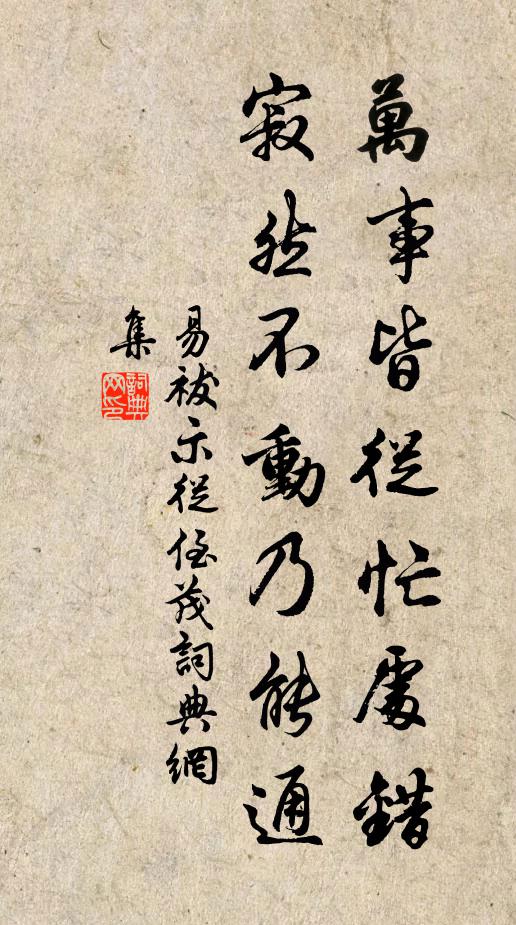 萬事皆從忙處錯
寂然不動乃能通
易祓示從侄茂詞典網
集
詞典
網印